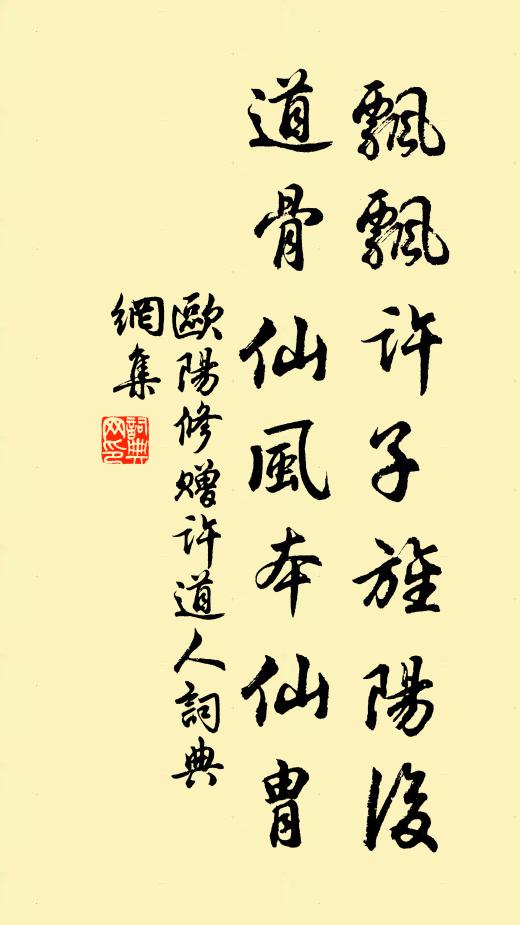 飄飄許子旌陽後
道骨仙風本仙冑
歐陽修贈許道人詞典
網集
詞典網印